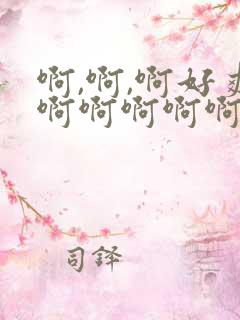 啊,啊,啊好爽
啊啊啊啊啊
司铎